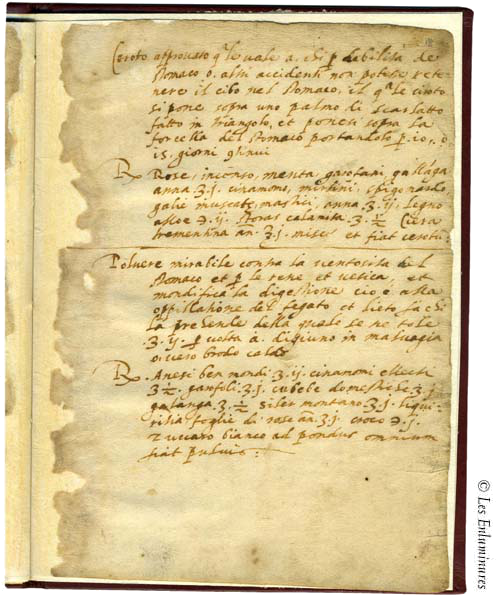 Ceroto approvato q'le vale a chi p debilità de
stomaco o altri accidenti non potesse rete-
nere il cibo nel stomaco, il q'le ciroto
si pone sopra uno palmo di scarlatto
fatto in triangolo, et ponesi sopra la
forcella del stomaco portandolo p. 10, o
15 giorni
℞ Rose, incenso, menta, garofani, gallàga
anna ʒ.j. cinamomo, mirtini, spigo nardo,
galie muscate, mastici, anna ʒ.ij. legno
aloe ℈.ij. storax calamita ʒ.½ Cera
trementina an. ʒ.j. misce et fiat
Polvere mirabile contra la ventosita del
stomaco et p le rene et vesica, et
mondifica la digestione cio è alla
oppillatione del fegato et lieto fa chi
la prende della quale se ne tole
ʒ.ij. p volta a digiuno in malvagia
overo brodo caldo
℞. Anesi ben mondi ʒ.ij. cinamomi electi
ʒ½ garofoli ʒ.j. cubebe domestiche ʒ.j
galanga ʒ.½ siler montano ʒ.j. liqui-
ritia foglie di rose an. ʒ.j. croco ℈.j.
zuccaro bianco ad pondus omnium
fiat pulvis :
© Les Enluminures